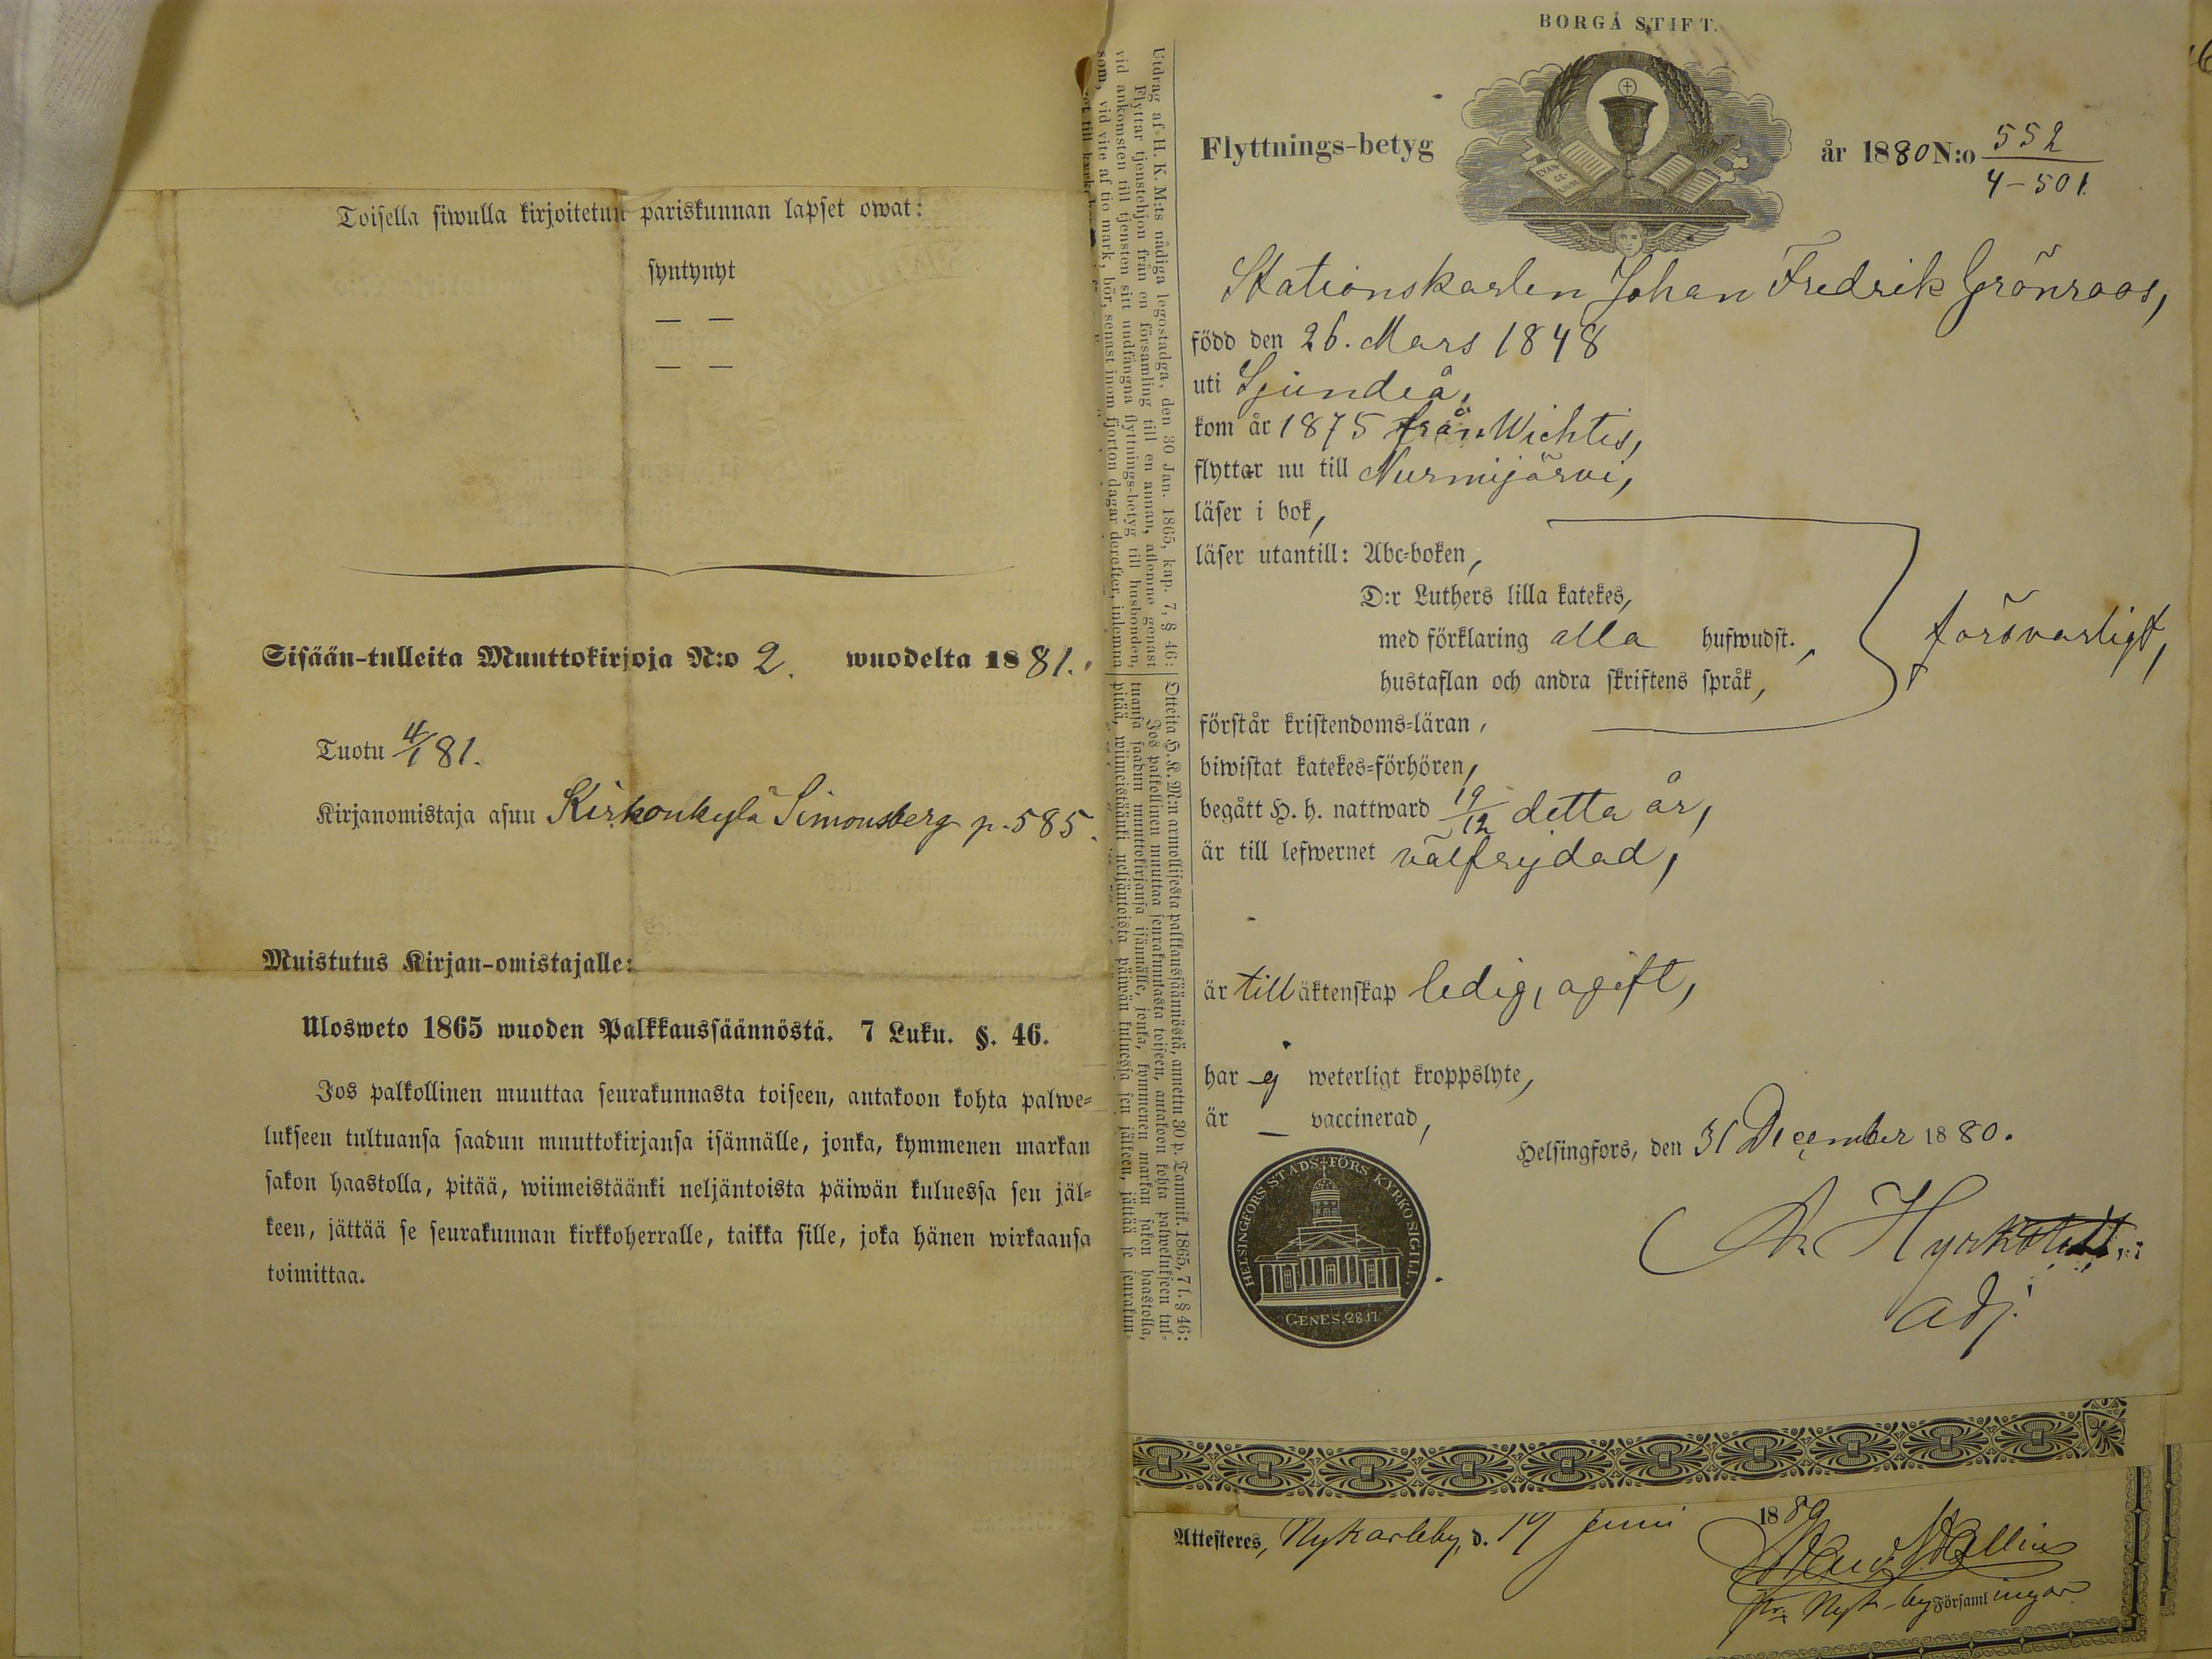 Toisella siwulla kirjoitetun pariskunnan lapset owat:
syntynyt
— —
— —
Sisään-tulleita Muuttokirjoja N:o 2. wuodelta 1881.
Tuotu 4/1 81.
Kirjanomistaja asuu Kirkonkylä Simonsberg p. 585.
Muistutus Kirjan-omistajalle:
Ulosweto 1865 wuoden Palkkaussäännöstä. 7 Luku. §. 46.
Jos palkollinen muuttaa seurakunnasta toiseen, antakoon kohta palwe-
lukseen tultuansa saadun muuttokirjansa isännälle, jonka, kymmenen markan
sakon haastolla, pitää, wiimeistäänki neljäntoista päiwän kuluessa sen jäl-
keen, jättää se seurakunnan kirkkoherralle, taikka sille, joka hänen wirkaansa
toimittaa.
Utdrag af H. K. M:ts nådiga legostadga, den 30 Jan. 1865, kap. 7, § 46:
Flyttar tjenstehjon från en församling till en annan, aflemne genast
vid ankomsten till tjensten sitt undfångna flyttnings-betyg till husbonden,
som, vid vite af tio mark, bör, senast inom fjorton dagar derefter, inlemna
Otteita H. K. M:n armollisesta palkkaussäännöstä, annettu 30 p. Tammik. 1865, 7 l. § 46:
Jos palkollinen muuttaa seurakunnasta toiseen, antakoon kohta palwelukseen tul-
tuansa saadun muuttokirjansa isännälle, jonka, kymmenen markan sakon haastolla,
pitää, wiimeistäänki neljäntoista päiwän kuluessa sen jälkeen, jättää se seurakun-
BORGÅ STIFT.
Flyttnings-betyg
EVAN-
GE-
LIUM
år 1880 N:o 552
4-501.
Stationskarlen Johan Fredrik Grönroos,
född den 26. Mars 1848
uti Sjundeå,
kom år 1875 från Wichtis,
flyttar nu till Nurmijärvi,
läser i bok,
läser utantill: Abc-boken,
D:r Luthers lilla katekes,
med förklaring alla hufwudst.,
försvarligt,
hustaflan och andra skriftens språk,
förstår kristendoms-läran,
biwistat katekes-förhören,
begått H. h. nattward 19/12 detta år,
är till lefwernet välfrejdad,
är till äktenskap ledig, ogift,
har ej weterligt kroppslyte,
är — vaccinerad,
Helsingfors, den 31 December 1880.
HELSINGFORS STADS-FÖRS KYRKOSIGILL.
GENES. 28.17.
adj.
Attesteres, Nykarleby, d. 19 Juni 1880
Församlingar